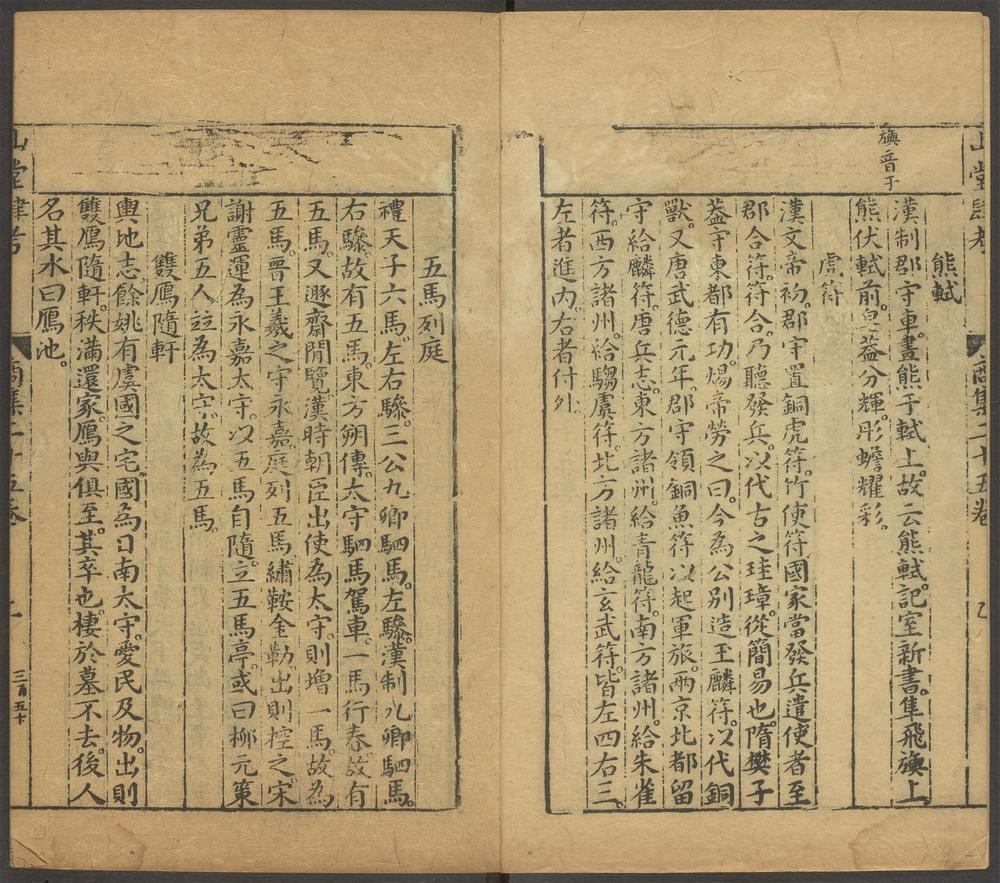 山堂肆考
商集二十五卷
旟音于
熊軾
漢制郡守車畫熊于軾上故云熊軾記室新書隼飛旟上
熊伏軾前皂葢分輝彤幨耀彩
虎符
漢文帝初郡守置銅虎符竹使符國家當發兵遣使者至
郡合符符合乃聽發兵以代古之珪璋從簡易也隋樊子
葢守東都有功煬帝勞之曰今為公別造玉麟符以代銅
獸又唐武德元年郡守領銅魚符以起軍旅兩京北都留
守給麟符唐兵志東方諸州給青龍符南方諸州給朱雀
符西方諸州給騶虞符北方諸州給玄武符皆左四右三
左者進內右者付外
五馬列庭
禮天子六馬左右驂三公九卿駟馬左驂漢制九卿駟馬
右驂故有五馬東方朔傳太守駟馬駕車一馬行春故有
五馬又遯齋閒覽漢時朝臣出使為太守則增一馬故為
五馬晉王羲之守永嘉庭列五馬繡鞍金勒出則控之宋
謝靈運為永嘉太守以五馬自隨立五馬亭或曰柳元策
兄弟五人竝為太守故為五馬
雙鴈隨軒
輿地志餘姚有虞國之宅國為日南太守愛民及物出則
雙鴈隨軒秩滿還家鴈與俱至其卒也棲於墓不去後人
名其水曰鴈池
山堂肆考
商集二十五卷
二
三百五十